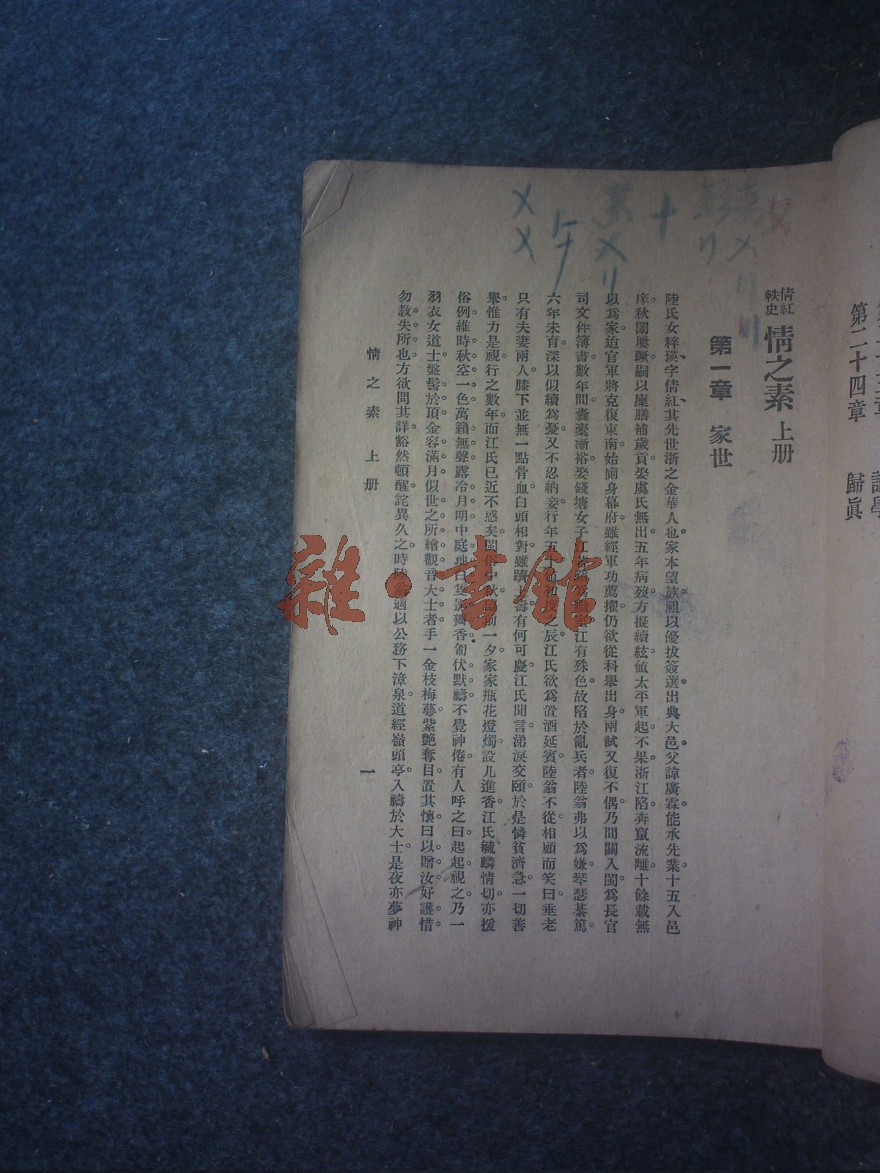 第二十四章　歸眞
倩紅軼史
情之素 上册
第一章 家世
陸氏女粹瑛字倩紅其先世浙之金華人也。家本望族。祖以優拔簽選出典大邑。父諱廣霖。能承先業。十五入邑
庠。秋闈屢蹶。嗣以廩膳補歲貢。娶虞氏無出。五年病歿。方擬續絃。値太平軍起不果。浙江陷。奔竄流離十餘載無
以爲家。迨官軍將克復東南。始廁身幕府。雖經軍功薦擢。仍欲從科舉出身。兩試又復不偶。乃間關入閩。爲長官
司文件簿書。數年間囊橐漸裕。娶錢塘女子江
江有殊色。故陷於亂兵者。陸翁弗以爲嫌。琴瑟綦篤。
六年未育。深以似續爲憂。又不忍納妾。行年五十
之辰。江氏欲爲置酒延賓。陸翁不從。相顧而笑曰。垂老
只有夫妻兩人。膝下並無一點骨血。白頭相對。雖躋上壽。有何可慶。江氏聞言。涕淚交頤。於是憐貧濟急。一切善
舉。惟力是視。行之數年。而江氏已近不惑矣。閩俗中秋
前一夕。家家瓶花燈燭。設几進香。江氏毓麟情切。亦援
俗例。維時秋空一色。萬籟無聲。露冷月明。中庭地白。
瓣香匍伏默禱。不覺神倦。有人呼之曰。起起。視之乃一
羽衣女道士。盤髻於頂。金容滿月。似世之所繪觀音大士者。手一金枝梅蕚。紫艷奪目。置其懷曰。以贈汝。好護惜。
勿敎失所也。方欲問其詳。豁然頓醒。詫異久之。時陸翁適以公務下漳泉。道經嶺頭亭。入禱於大士。是夜亦夢神
情之素 上册
一
雜·書館